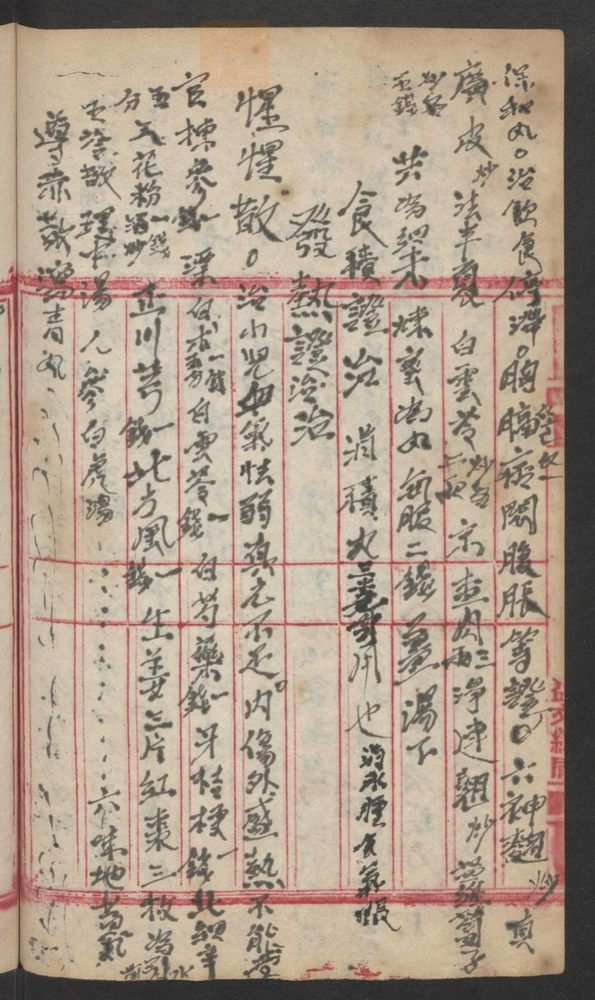 保和丸。治飲食停滯。胸膈痞悶腹脹等證。六神麯炒 真
廣皮炒 法半夏 白雲苓 炒 京查肉三兩 淨連翹炒 蘿蔔子
炒各五錢 共為細末煉蜜為丸每服二錢姜湯下
食積證治 消積丸 用也 治水腫食氣脹
發熱證治
惺惺散。治小兒血氣怯弱真元不足。內傷外感熱不能
官揀參錢一 漂白朮一錢 白雲苓錢一 白芍藥錢一 牙桔梗錢一 北細辛
五分 天花粉一錢酒炒 正川芎錢一 北方風錢一 生姜三片 紅棗三枚為引 水
五苓散 理中湯 人參白虎湯 六味地黃丸
導赤散 瀉青丸